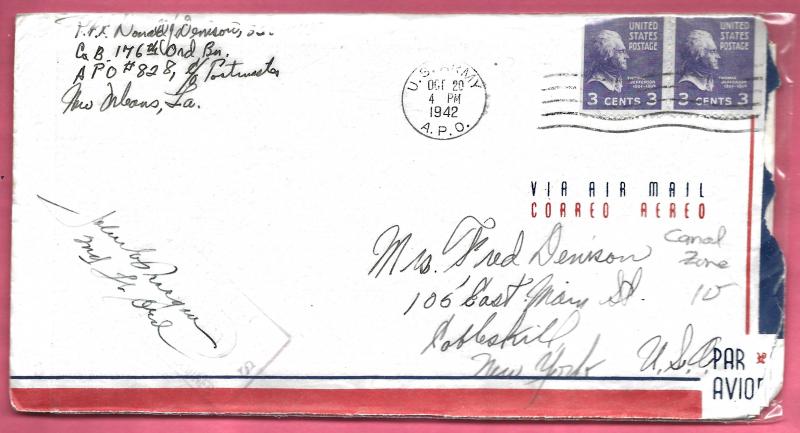 P.F.C. Donald Denison,
Co B. 176th Ord Bn.
A P O #828, % Postmaster
New Orleans, La.
U.S. ARMY
OCT 20
4 PM
1942
A.P.O.
UNITED STATES POSTAGE
THOMAS JEFFERSON
1801-1809
3 CENTS 3
UNITED STATES POSTAGE
THOMAS JEFFERSON
1801-1809
3 CENTS 3
VIA AIR MAIL
CORREO AEREO
Canal
Zone
10
Mrs. Fred Denison
106 East Main St.
Cobleskill,
New York U.S.A.
2nd Lt. Ord
PAR
AVION